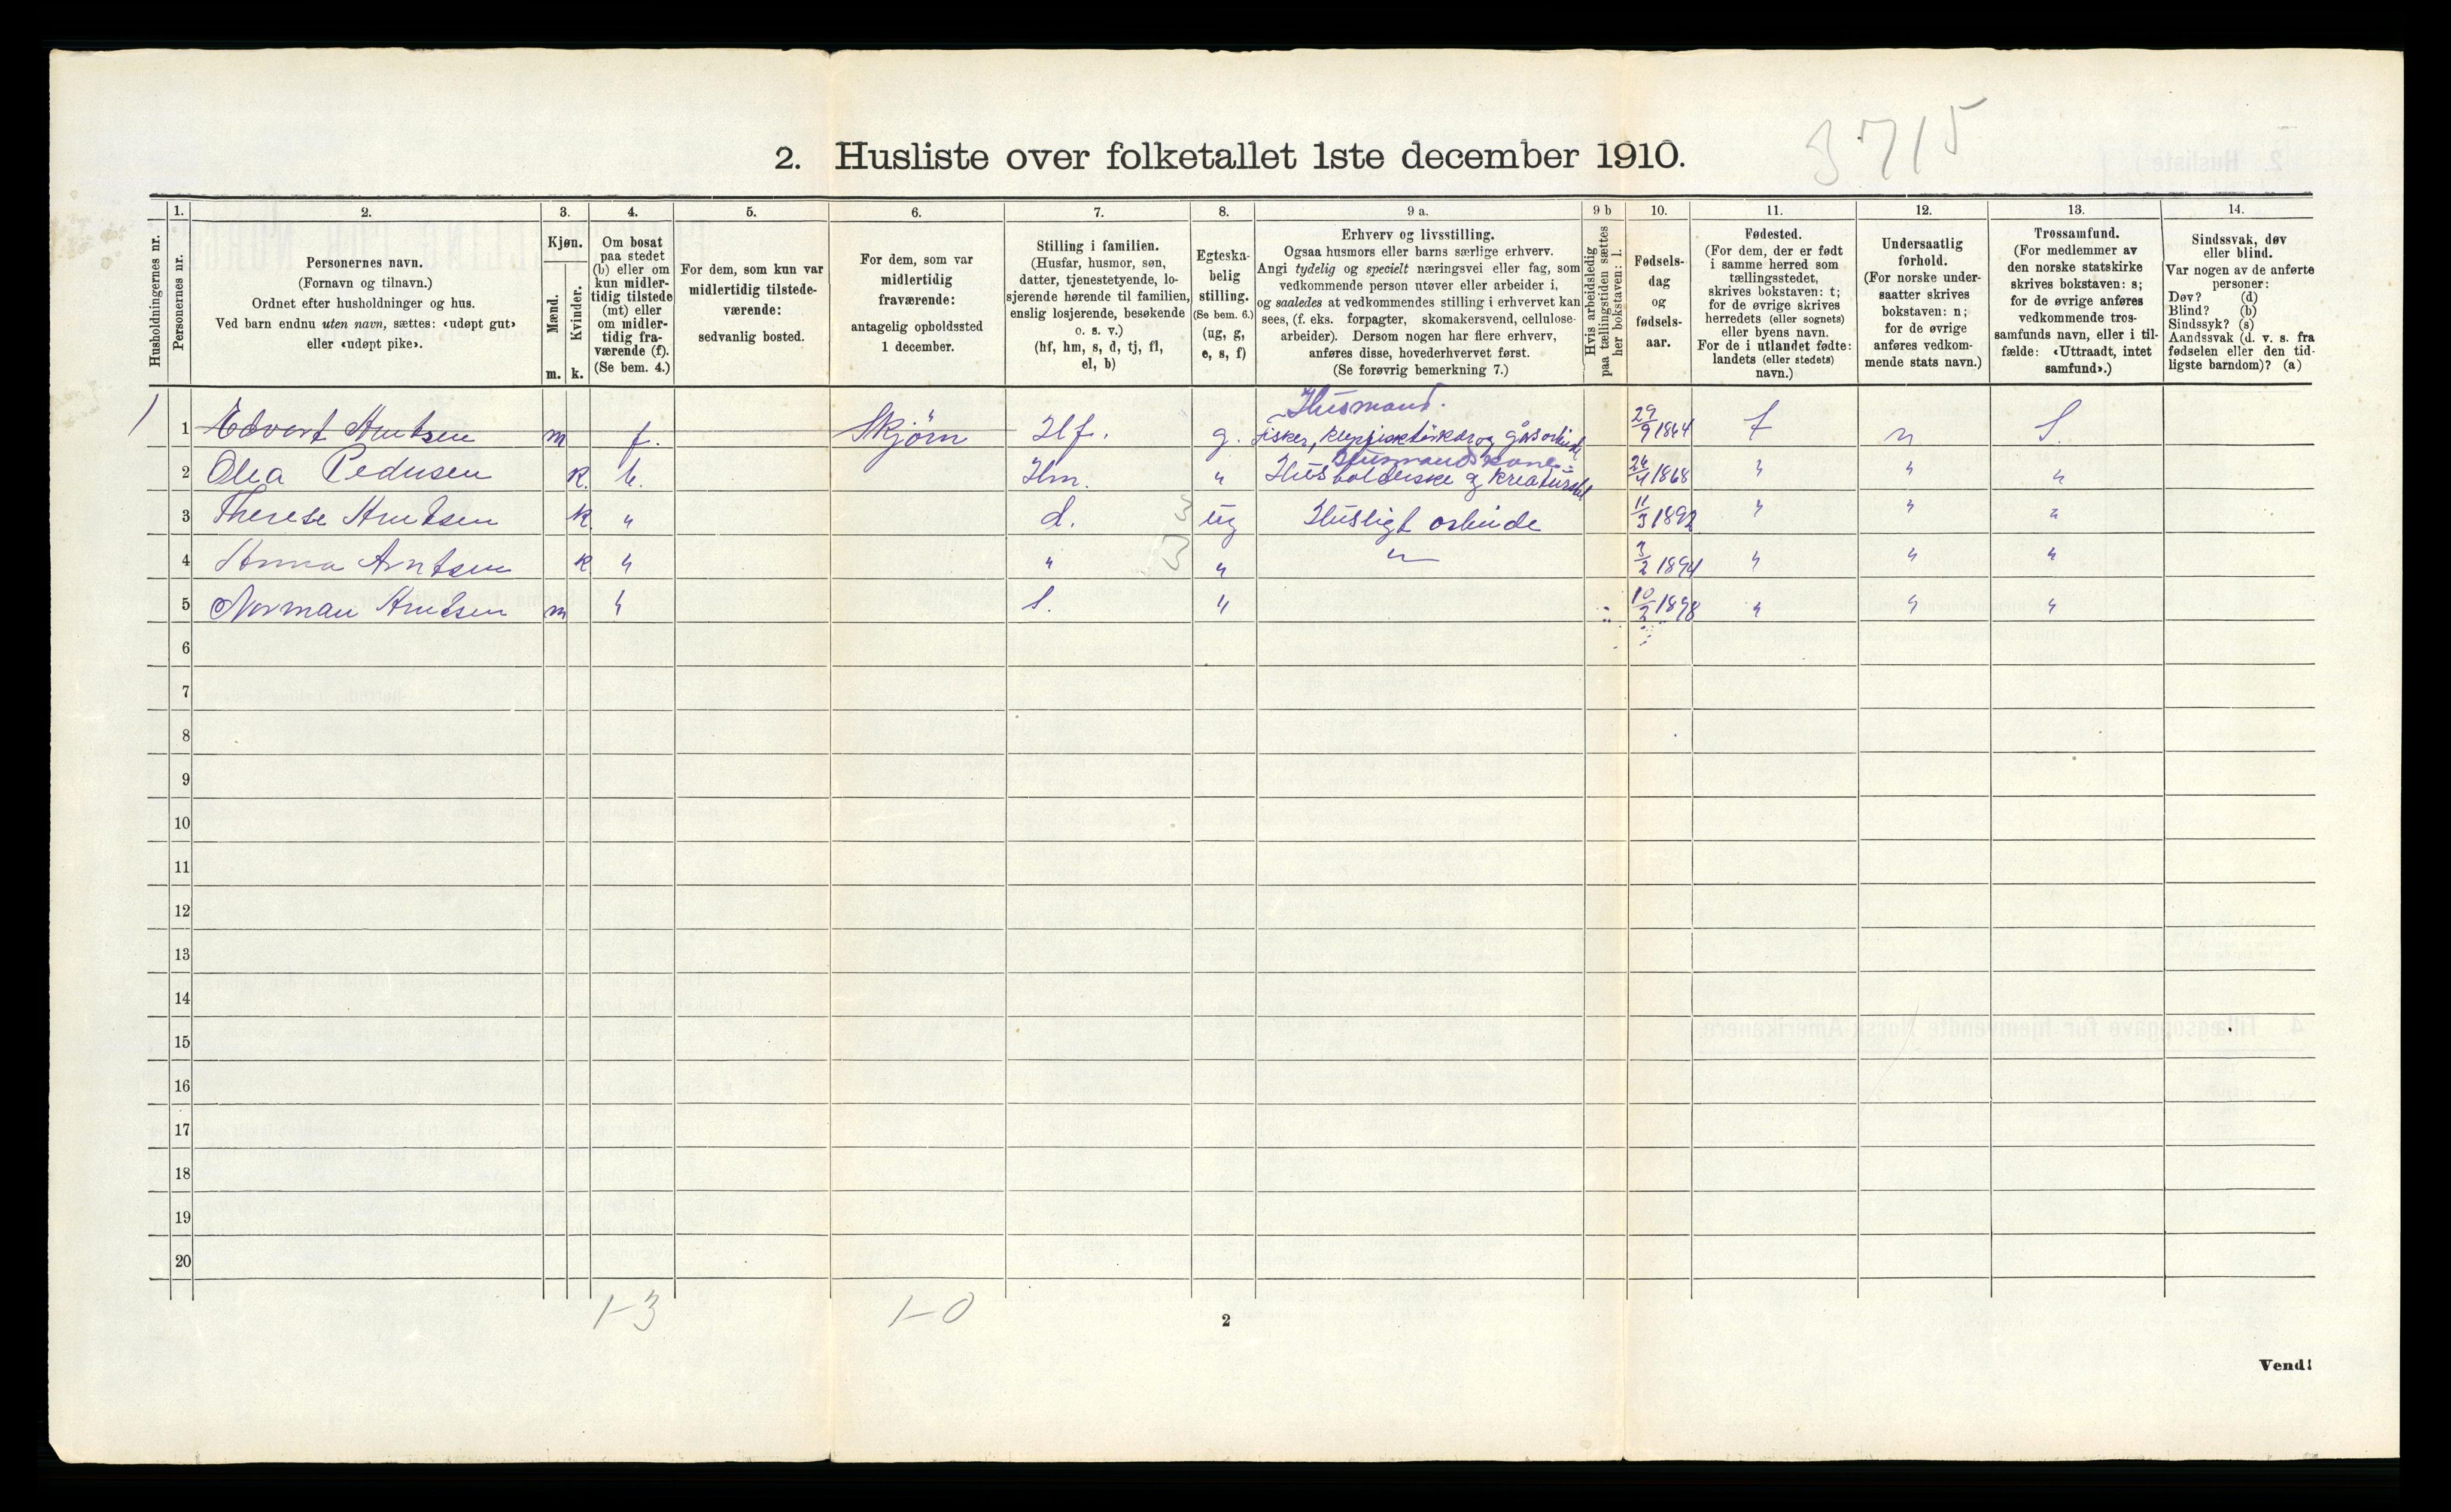 3715
2. Husliste over folketallet 1ste december 1910.
Husholdningernes nr.
1. Personernes nr.
2. Personernes navn.
(Fornavn og tilnavn.)
Ordnet efter husholdninger og hus.
Ved barn endnu uten navn, sættes: «udøpt gut»
eller «udøpt pike».
3. Kjøn.
Mænd. m.
Kvinder. k.
4. Om bosat
paa stedet
(b) eller om
kun midler-
tidig tilstede
(mt) eller
om midler-
tidig fra-
værende (f).
(Se bem. 4.)
5. For dem, som kun var
midlertidig tilstede-
værende:
sedvanlig bosted.
6. For dem, som var
midlertidig
fraværende:
antagelig opholdssted
1 december.
7. Stilling i familien.
(Husfar, husmor, søn,
datter, tjenestetyende, lo-
sjerende hørende til familien,
enslig losjerende, besøkende
o. s. v.)
(hf, hm, s, d, tj, fl,
el, b)
8. Egteska-
belig
stilling.
(Se bem. 6.)
(ug, g,
e, s, f)
9 a. Erhverv og livsstilling.
Ogsaa husmors eller barns særlige erhverv.
Angi tydelig og specielt næringsvei eller fag, som
vedkommende person utøver eller arbeider i,
og saaledes at vedkommendes stilling i erhvervet kan
sees, (f. eks. forpagter, skomakersvend, cellulose-
arbeider). Dersom nogen har flere erhverv,
anføres disse, hovederhvervet først.
(Se forøvrig bemerkning 7.)
9 b Hvis arbeidsledig
paa tællingstiden sættes
her bokstaven: l.
10. Fødsels-
dag
og
fødsels-
aar.
11. Fødested.
(For dem, der er født
i samme herred som
tællingsstedet,
skrives bokstaven: t;
for de øvrige skrives
herredets (eller sognets)
eller byens navn.
For de i utlandet fødte:
landets (eller stedets)
navn.)
12. Undersaatlig
forhold.
(For norske under-
saatter skrives
bokstaven: n;
for de øvrige
anføres vedkom-
mende stats navn.)
13. Trossamfund.
(For medlemmer av
den norske statskirke
skrives bokstaven: s;
for de øvrige anføres
vedkommende tros-
samfunds navn, eller i til-
fælde: «Uttraadt, intet
samfund».)
14. Sindssvak, døv
eller blind.
Var nogen av de anførte
personer:
Døv? (d)
Blind? (b)
Sindssyk? (s)
Aandssvak (d. v. s. fra
fødselen eller den tid-
ligste barndom)? (a)
Husmand.
1 1 Edvart Arntsen m f. Skjørn Hf. g. Fisker, og 29/9 1864 t n S.
Husmandskone
2 Olea Pedersen k. b. Hm. " Husholderske og kreaturstel 24/4 1868 " " "
3 Therese Arntsen k " d. ug Husligt arbeide 11/3 1892 " " "
4 Anna Arntsen k " " " " 3/2 1894 " " "
5 Norman Arntsen m " s. " 10/2 1898 " " "
6
7
8
9
10
11
12
13
14
15
16
17
18
19
20
1-3 1-0
2
Vend!